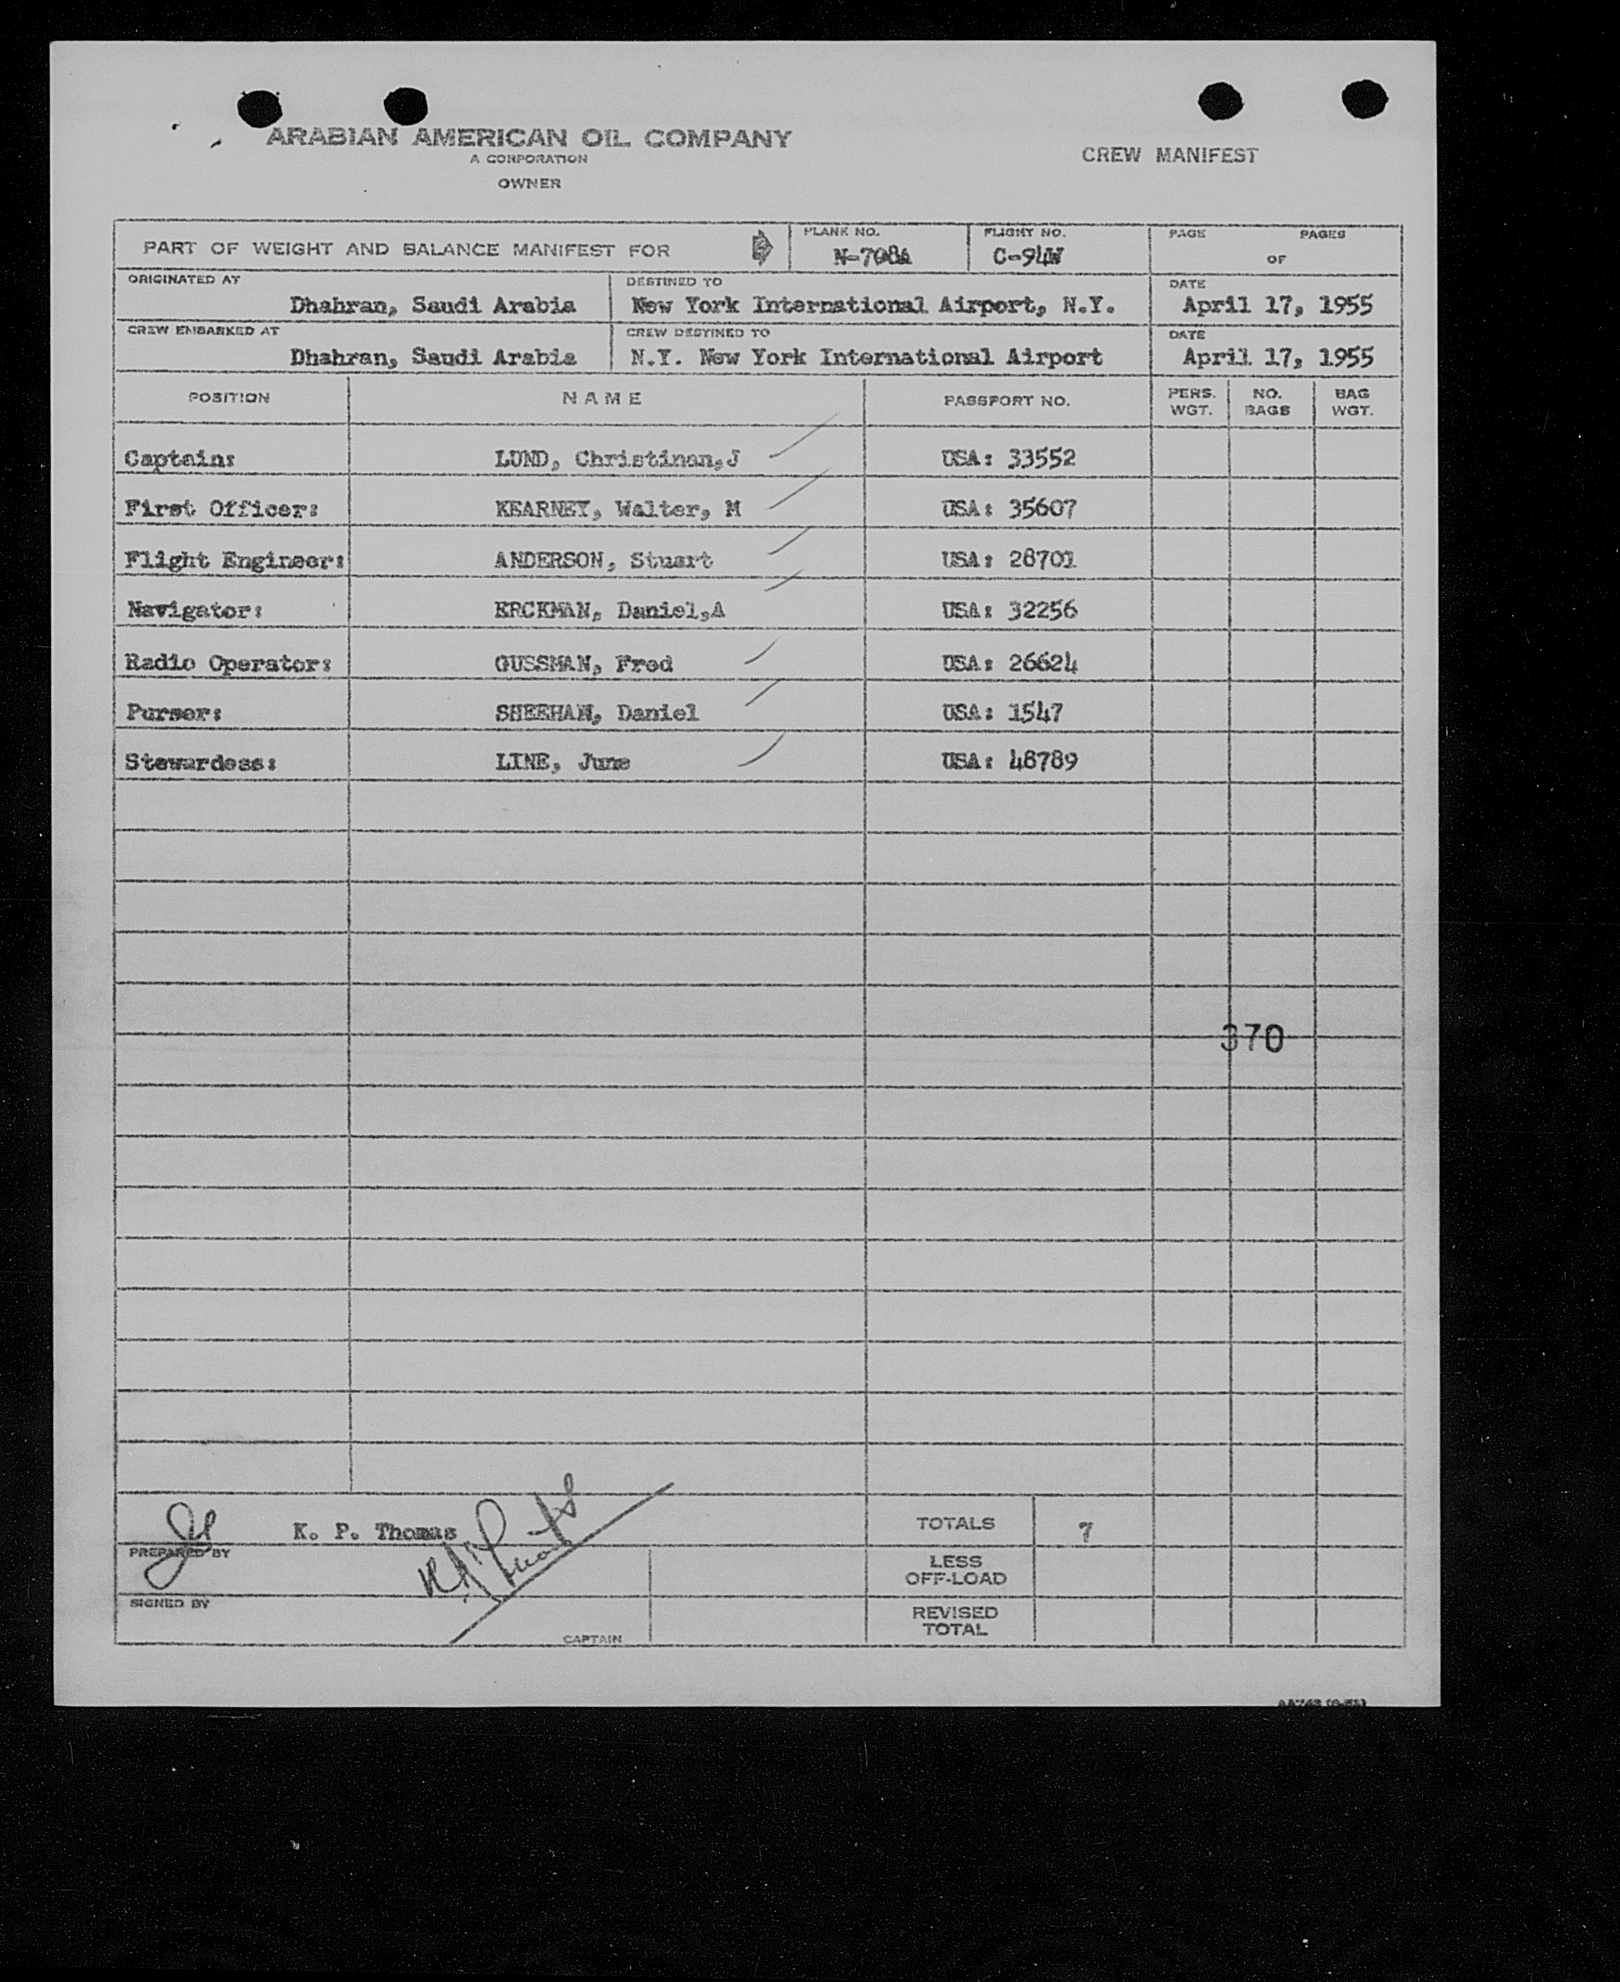 ARABIAN AMERICAN OIL COMPANY
A CORPORATION
OWNER
CREW MANIFEST
PART OF WEIGHT AND BALANCE MANIFEST FOR
PLANE NO. N-708A
FLIGHT NO. C-94W
PAGE OF PAGES
ORIGINATED AT Dhahran, Saudi Arabia
DESTINED TO New York International Airport, N.Y.
DATE April 17, 1955
CREW EMBARKED AT Dhahran, Saudi Arabia
CREW DESTINED TO N.Y. New York International Airport
DATE April 17, 1955
POSITION NAME PASSPORT NO. PERS. WGT. NO. BAGS BAG WGT.
Captain: LUND, Christinan,J USA: 33552
First Officer: KEARNEY, Walter, M USA: 35607
Flight Engineer: ANDERSON, Stuart USA: 28701
Navigator: ERCKMAN, Daniel,A USA: 32256
Radio Operator: GUSSMAN, Fred USA: 26624
Purser: SHEEHAN, Daniel USA: 1547
Stewardess: LINE, June USA: 48789
370
K. P. Thomas
PREPARED BY
SIGNED BY
CAPTAIN
TOTALS 7
LESS
OFF-LOAD
REVISED
TOTAL